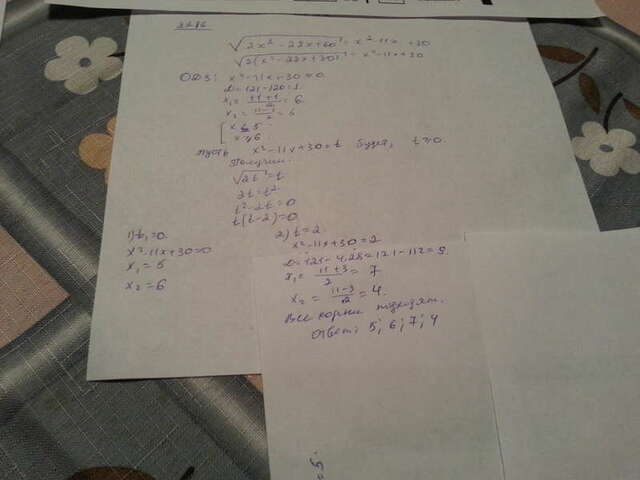 √2x²-22x+60 = x²-11x+30
√2(x²-22x+30) = x²-11x+30
ОДЗ: x²-11x+30≥0
D=121-120=1
x₁=(11+1)/2=6
x₂=(11-1)/2=5
x≤5
x≥6
Пусть x²-11x+30=t будет, t≥0.
Получим:
√2t=t
2t=t²
t²-2t=0
t(t-2)=0
1) t₁=0.
x²-11x+30=0
x₁=5
x₂=6
2) t=2.
x²-11x+30=2
D=121-4·28=121-112=9.
x₁=(11+3)/2=7
x₂=(11-3)/2=4.
Все корни подходят.
Ответ: 5; 6; 7; 4
=5.